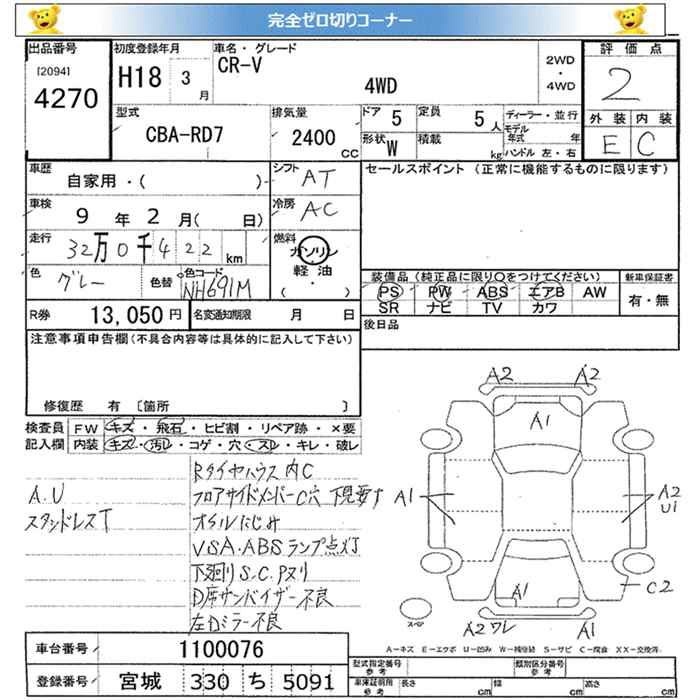 完全ゼロ切りコーナー
出品番号 初度登録年月 車名・グレード 評価点
[2094] 4270 H18 3月 CR-V 4WD 2WD・4WD 2
型式 排気量 ドア 5 定員 5人 ディーラー・並行 外装 内装
CBA-RD7 2400CC 形状 W 積載 kg モデル年式 年 ハンドル 左・右 E C
車歴 自家用・( ) シフト AT セールスポイント (正常に機能するものに限ります)
車検 9年2月( 日) 冷房 AC
走行 32万0千422km 燃料 ガソリン
軽油
( ・ )
色 グレー 色替 色コード NH691M 装備品 (純正品に限り○をつけてください) 新車保証書
PS PW ABS エアB AW 有・無
SR ナビ TV カワ
R券 13,050円 名変通知期限 月 日 後日品
注意事項申告欄(不具合内容等は具体的に記入して下さい)
修復歴 有 〔箇所 〕
検査員 FW キズ・飛石・ヒビ割・リペア跡・×要
記入欄 内装 キズ・汚レ・コゲ・穴・スレ・キレ・破レ
A.U
スタッドレスT
Rタイヤハウス内C
フロアサイドメンバーC穴 下見要す
オイルにじみ
VSA・ABSランプ点灯
下廻りS.C.Pヌリ
D席サンバイザー不良
左Dミラー不良
A2 A2
A1
A1 A2
U1
A1
C2
スペア
A2 ワレ A1
A-キズ E-エクボ U-凹み W-補修跡 S-サビ C-腐食 XX-交換済
車台番号 1100076 型式指定番号 参考 類別区分番号 参考
登録番号 宮城 330 ち 5091 車庫証明用 参考 長さ cm 幅 cm 高さ cm